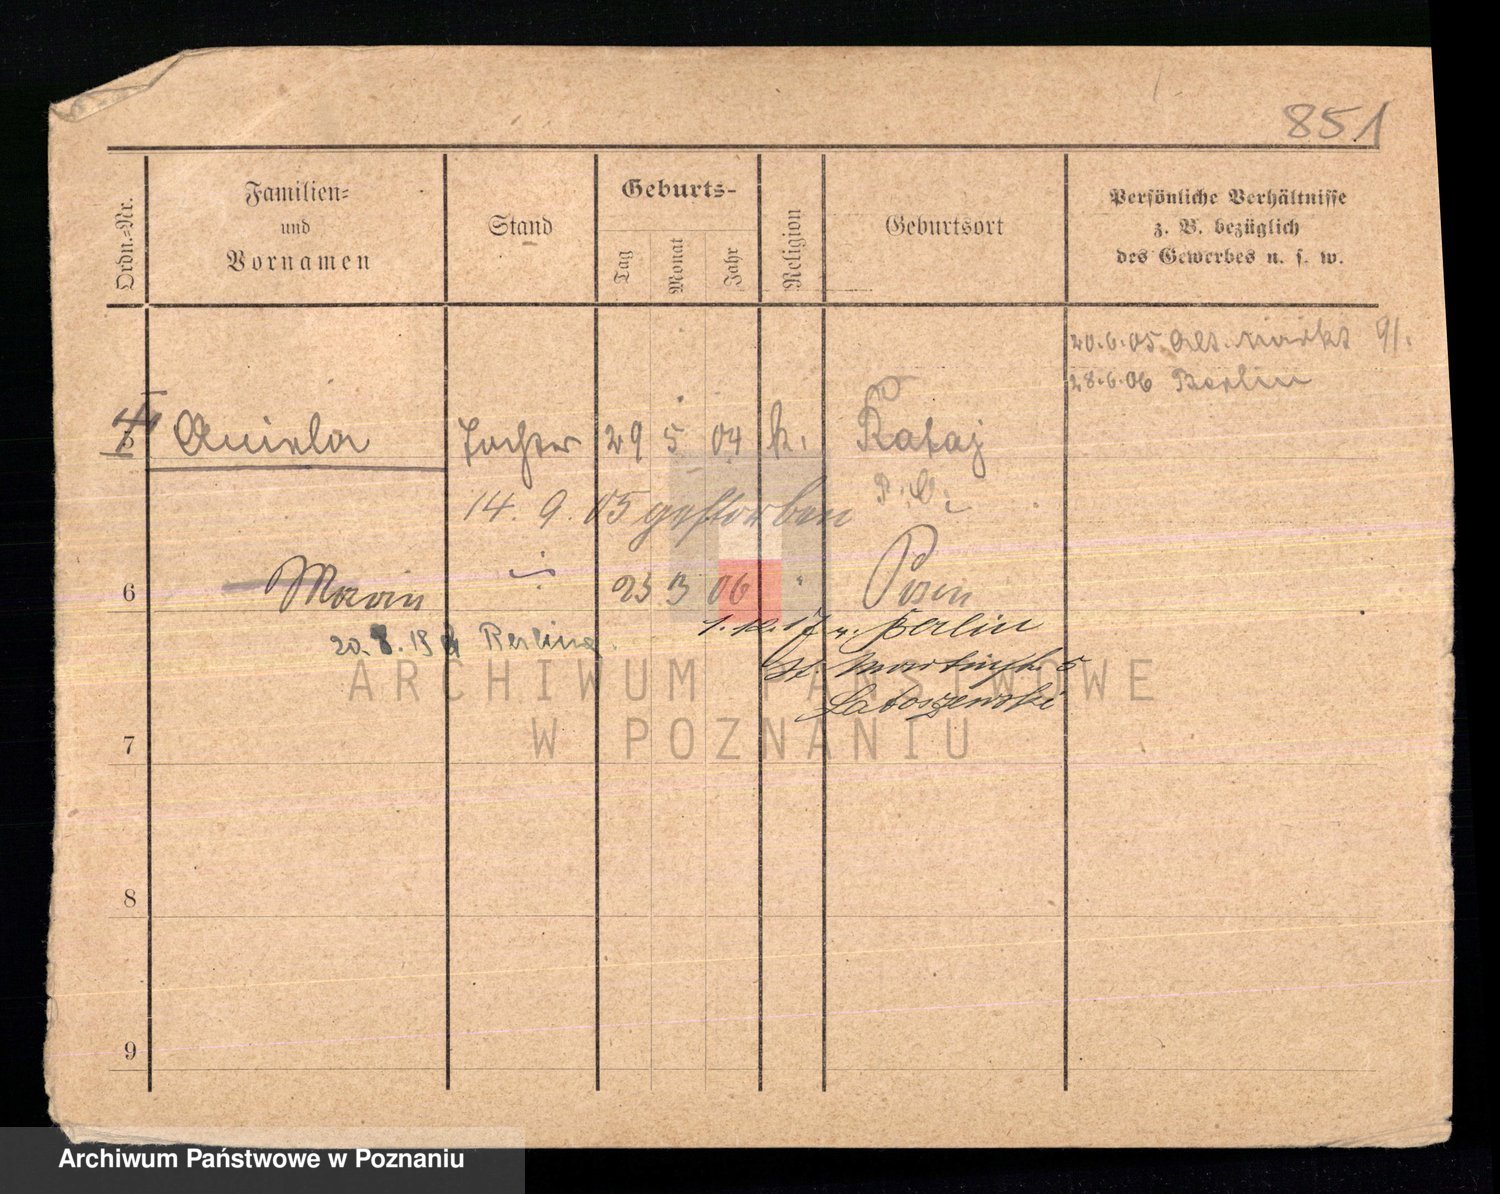 851
Ordn.-Nr.
Familien-
und
Vornamen
Stand
Geburts-
Tag
Monat
Jahr
Religion
Geburtsort
Persönliche Verhältnisse
z. B. bezüglich
des Gewerbes u. s. w.
20.6.05 Alt. Markt 91.
28.6.06 Berlin
5 Aniela Tochter 29 5 04 k. Rataj
P. O.
14. 9. 05 gestorben
6 Marin 23 3 06 " Posen
1.12.17 v. Berlin
20.8.19 Berlin
St. Martinstr. 5
Latoszewski
ARCHIWUM PAŃSTWOWE
W POZNANIU
7
8
9
Archiwum Państwowe w Poznaniu